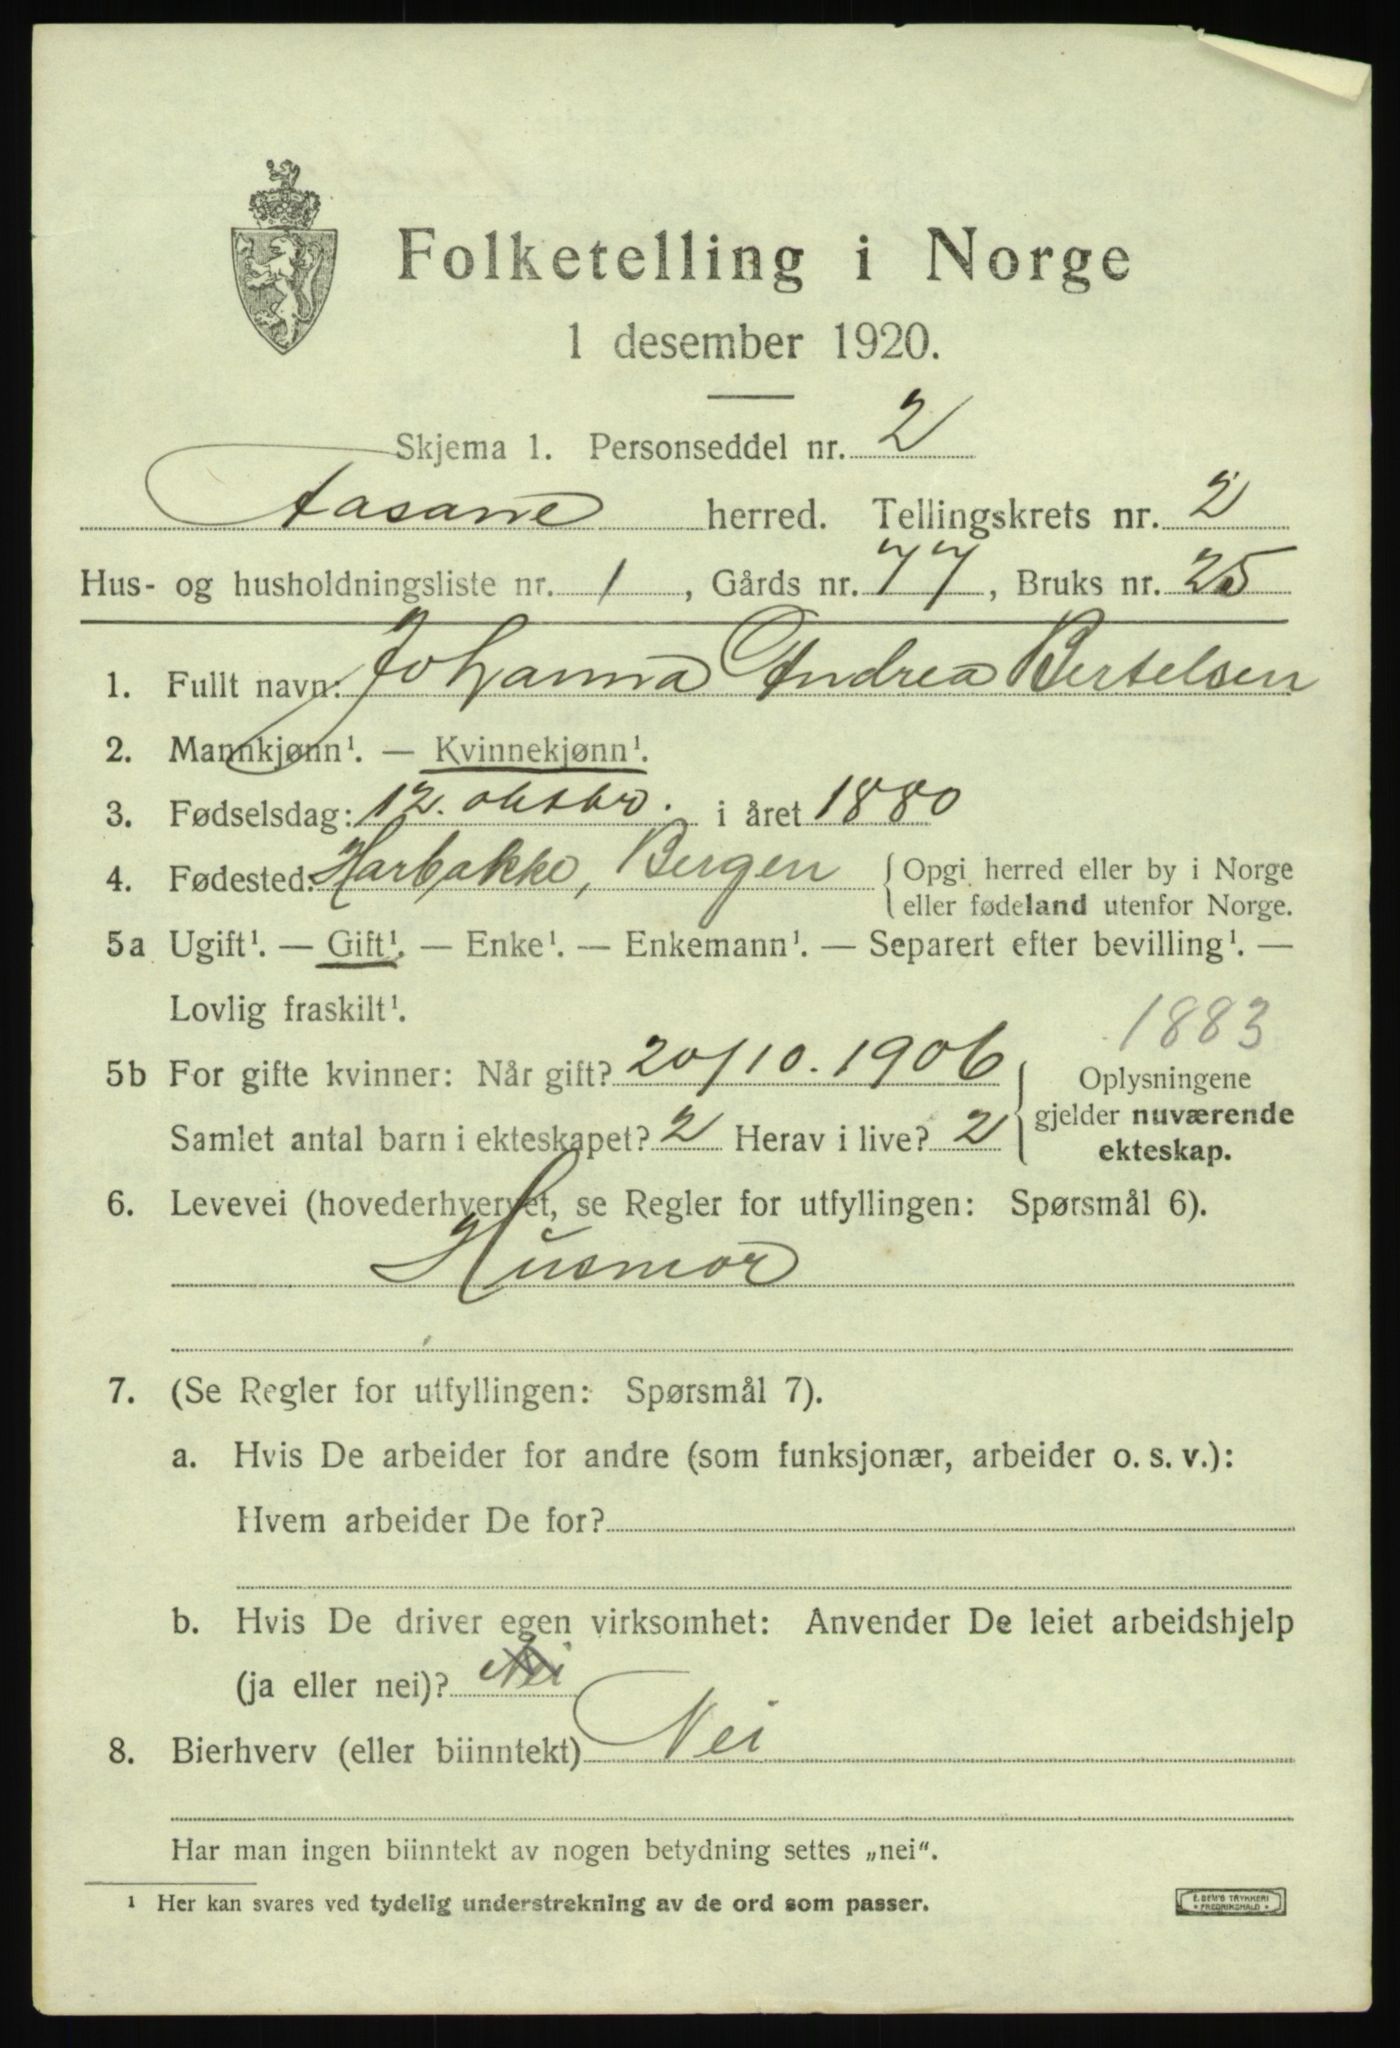 Folketelling i Norge
1 desember 1920.
Skjema 1. Personseddel nr. 2
Aasane herred. Tellingskrets nr. 2
Hus- og husholdningsliste nr. 1, Gårds nr. 77, Bruks nr. 25
1. Fullt navn: Johanna Andrea Bertelsen
2. Mannkjønn¹. — Kvinnekjønn¹.
3. Fødselsdag: 12. oktbr. i året 1880
4. Fødested: Harbakke, Bergen { Opgi herred eller by i Norge
eller fødeland utenfor Norge.
5a Ugift¹. — Gift¹. — Enke¹. — Enkemann¹. — Separert efter bevilling¹. —
Lovlig fraskilt¹.
1883
5b For gifte kvinner: Når gift? 20/10. 1906 } Oplysningene
gjelder nuværende
Samlet antal barn i ekteskapet? 2 Herav i live? 2
ekteskap.
6. Levevei (hovederhvervet, se Regler for utfyllingen: Spørsmål 6).
Husmor
7. (Se Regler for utfyllingen: Spørsmål 7).
a. Hvis De arbeider for andre (som funksjonær, arbeider o. s. v.):
Hvem arbeider De for?
b. Hvis De driver egen virksomhet: Anvender De leiet arbeidshjelp
(ja eller nei)? Nei
8. Bierhverv (eller biinntekt) Nei
Har man ingen biinntekt av nogen betydning settes „nei“.
¹ Her kan svares ved tydelig understrekning av de ord som passer.
E. SEM'S TRYKKERI
* FREDRIKSHALD *